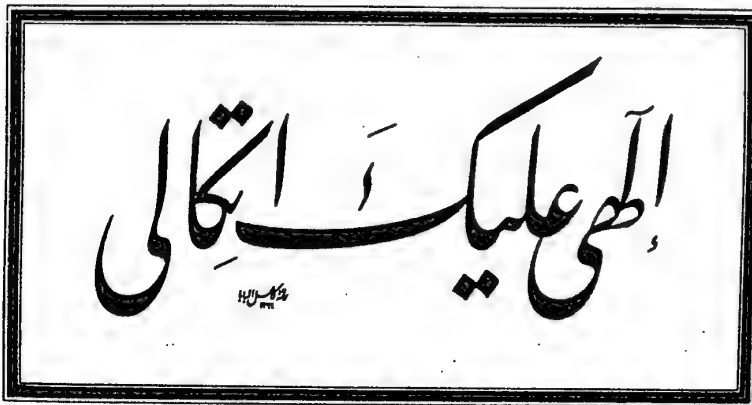 إلٰهي عليكَ اتِّكالي